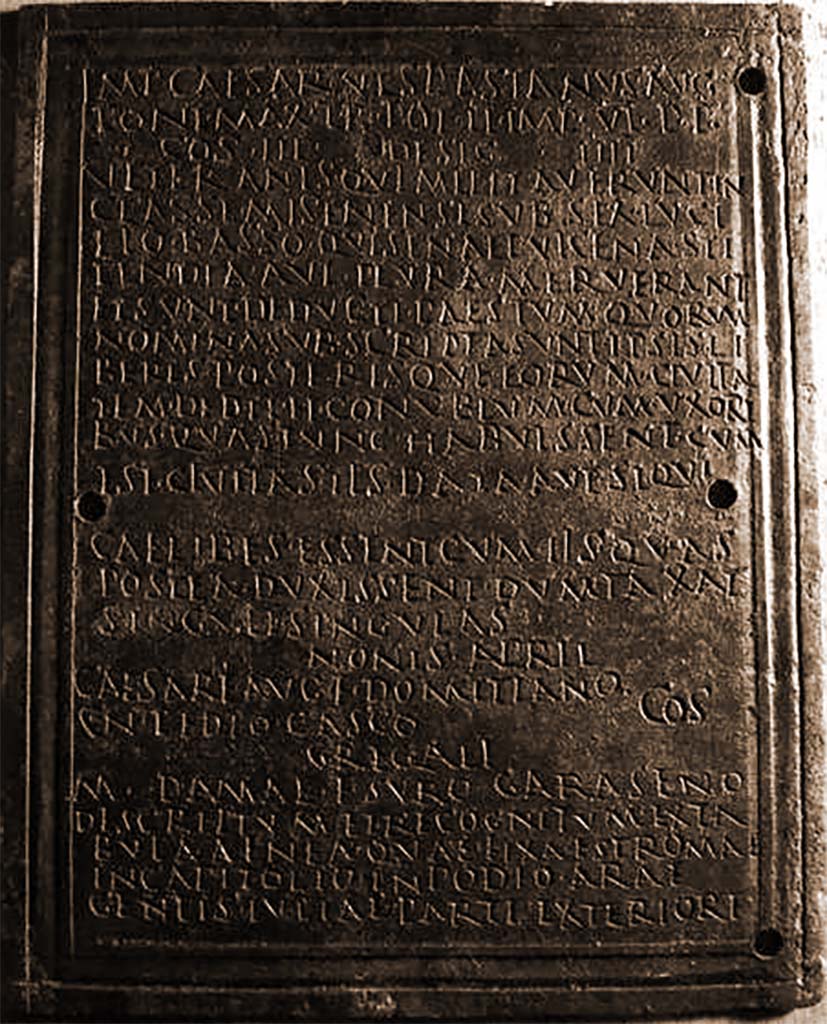 IMP CAESAR VESPASIANVS AVG
PONT MAX TR POT II IMP VI P P
COS III DESIG IIII
VETERANIS QVI MILITAVERVNT IN
CLASSE MISENENSE SVB SEX LVCI
LIO BASSO QVI SENA ET VICENA STI
PENDIA AVT PLVRA MERVERANT
ET SVNT DEDVCTI PAESTVM QVORVM
NOMINA SVBSCRIPTA SVNT IPSIS LI
BERIS POSTERISQVE EORVM CIVITA
TEM DEDIT ET CONVBIVM CVM VXORI
BVS QVAS TVNC HABVISSENT CVM
EST CIVITAS IIS DATA AVT SI QVI
CAELIBES ESSENT CVM IIS QVAS
POSTEA DVXISSENT DVMTAXAT
SINGVLI SINGVLAS
NONIS APRIL
CAESARE AVG F DOMITIANO COS
CN PEDIO CASCO
GREGALI
M DAMAE F SVRO GARASENO
DESCRIPTVM ET RECOGNITVM EX TA
BVLA AENEA QVAE FIXA EST ROMAE
IN CAPITOLIO IN PODIO ARAE
GENTIS IVLIAE PARTE EXTERIORE